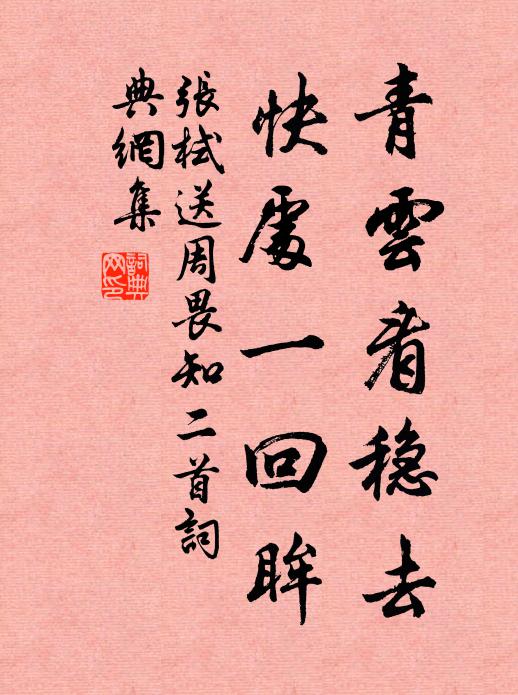 青雲看穩去
快處一回眸
張栻送周畏知二首詞
典網集
詞典網印